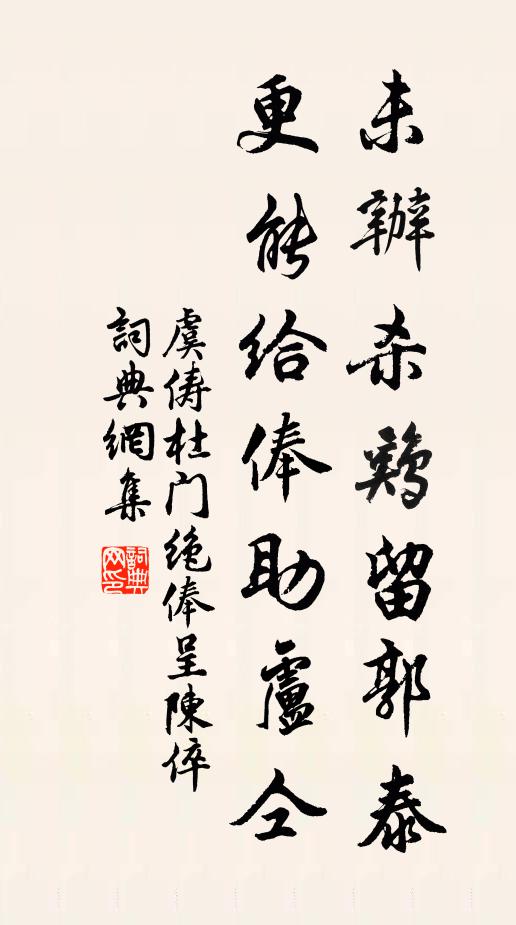 未辦杀鷄留郭泰
更能给俸助盧仝
虞儔杜门绝俸呈陳倅
詞典網集
詞典网印